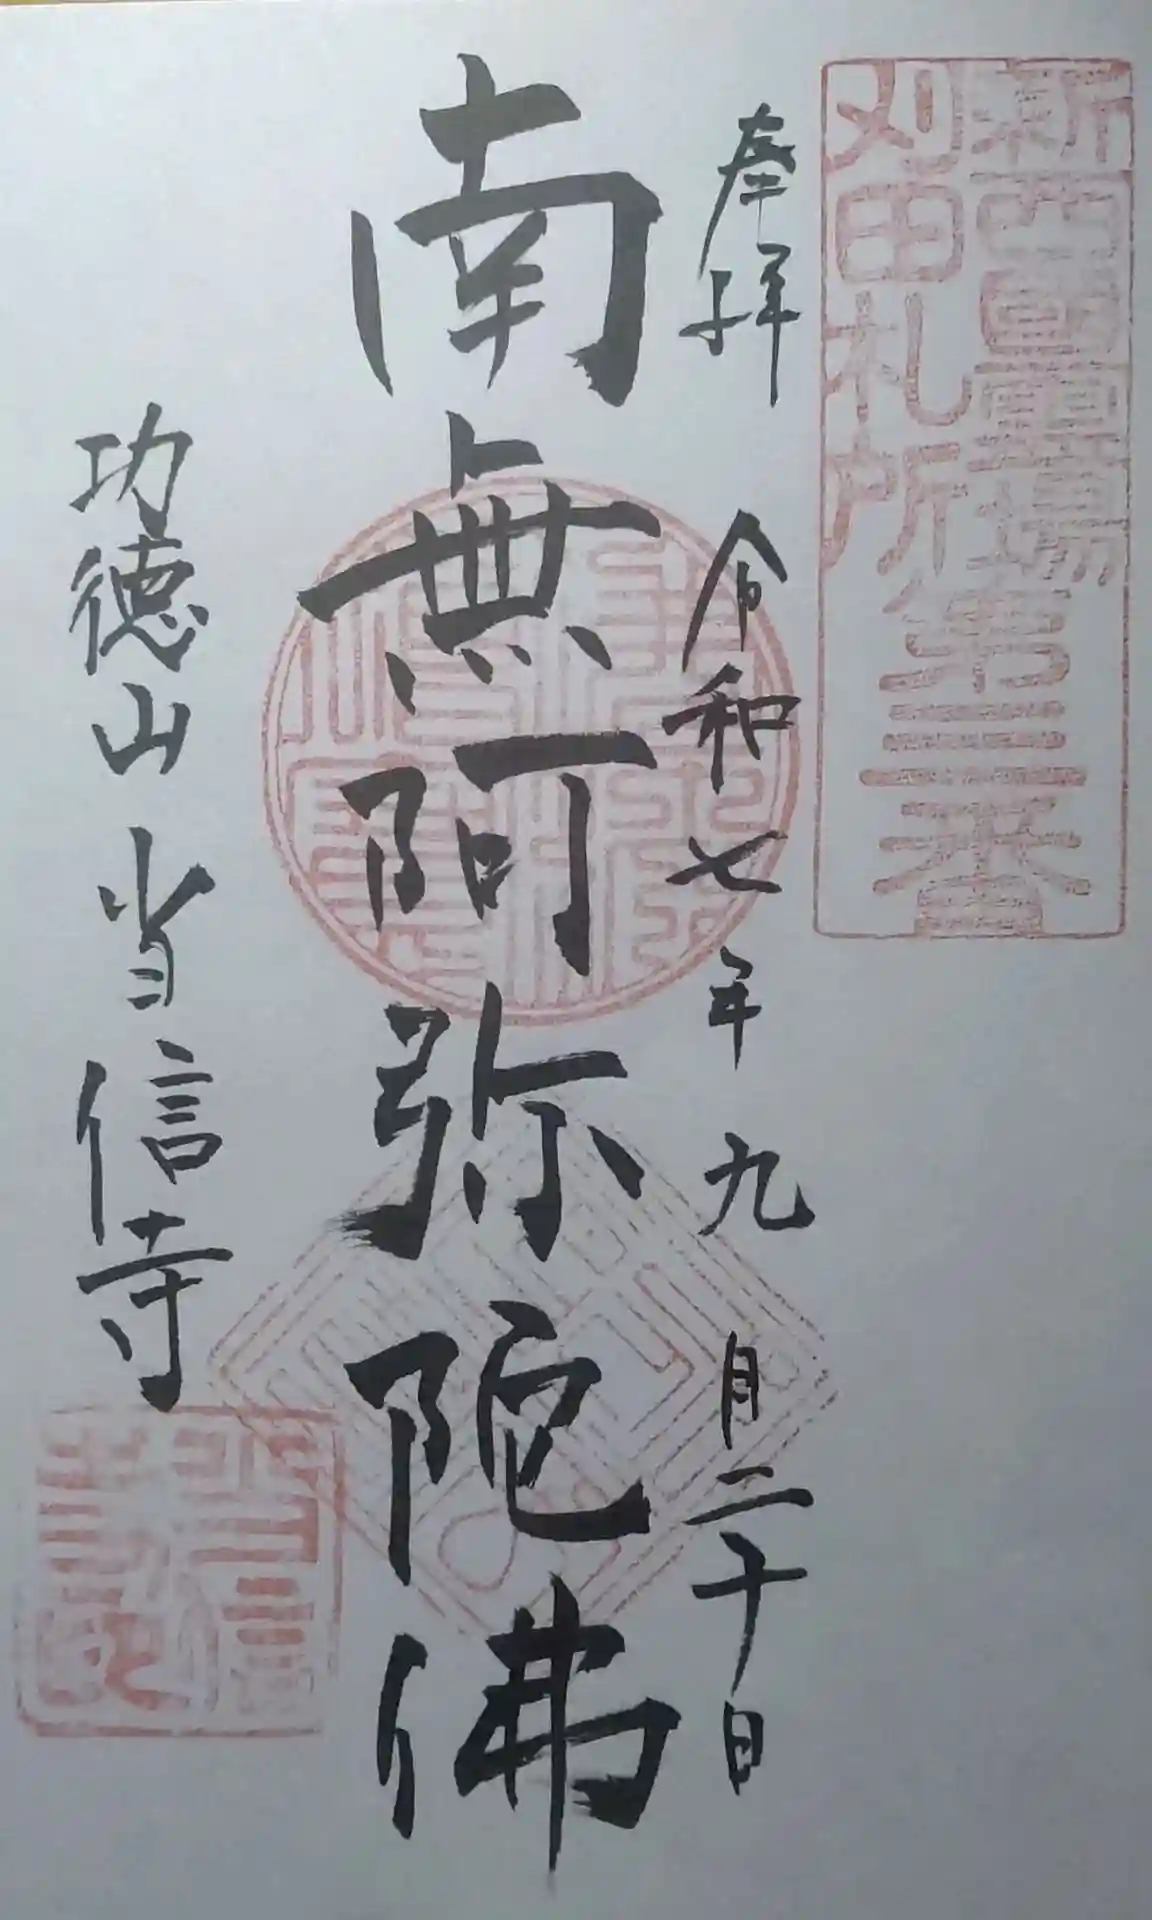 新西國靈場
刈田札所第三番
奉拝 令和七年九月二十日
南無阿弥陀佛
功徳山 当信寺